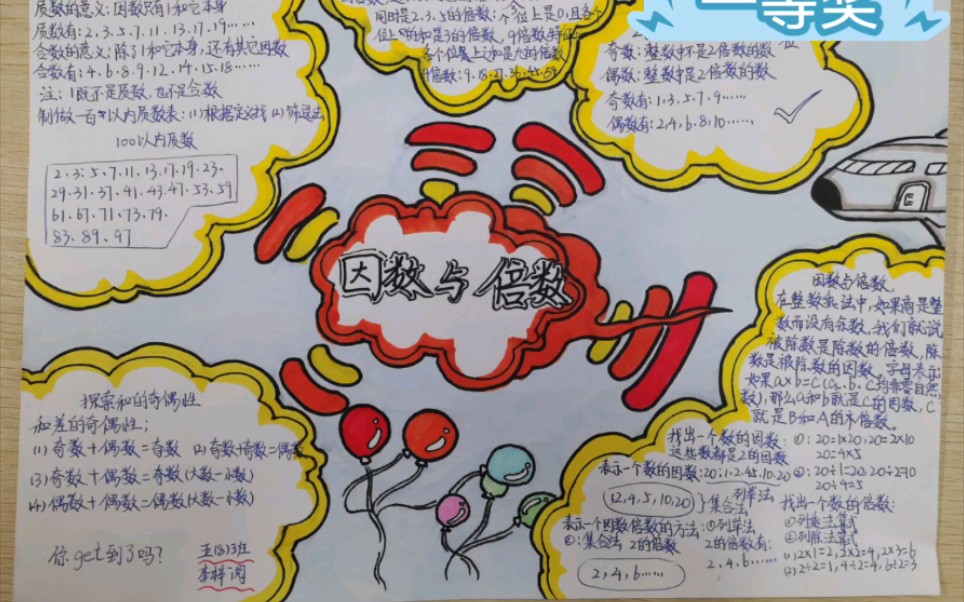 一等奖
质数的意义:因数只有1和它本身
质数有:2、3、5、7、11、13、17、19……
合数的意义:除了1和它本身,还有其它因数
合数有:4、6、8、9、12、14、15、18……
注:1既不是质数,也不是合数
制做一百以内质数表:(1)根据定义找(2)筛选法
100以内质数
2、3、5、7、11、13、17、19、23、
29、31、37、41、43、47、53、59
61、67、71、73、79、
83、89、97
同时是2、3、5的倍数:个位上是0,且各个
位上的和是3的倍数,9倍数特征:
各个位数上之和是九的倍数
9倍数:9、18、27、36、45、54
奇数:整数中不是2倍数的数
偶数:整数中是2倍数的数
奇数有:1、3、5、7、9……
偶数有:2,4,6,8,10……
因数与倍数
探索和的奇偶性
和差的奇偶性:
(1)奇数+偶数=奇数 (2)奇数+奇数=偶数
(3)奇数+偶数=奇数(大数-小数)
(4)偶数+偶数=偶数(大数-小数)
你get到了吗?
五(8)班
李梓
因数与倍数
在整数乘法中,如果商是整
数而没有余数,我们就说
被除数是除数的倍数,除
数是被除数的因数。字母表示:
如果a×b=C(a、b、C均非零自然
数),那么a和b就是C的因数,C
就是B和A的倍数。
找出一个数的因数:①:20=1×20,20=2×10
这些数都是20的因数 20=4×5
表示一个数的因数:20:1、2、4、5、10、20 ②:20÷1=20,20÷2=10
列举法 20÷4=5
1,2,4,5,10,20 }集合法
找出一个数的倍数:
表示一个因数倍数的方法:①列举法 ①列乘法算式
②:集合法 2的倍数 2的倍数有: ②列除法算式
2,4,6…… 2、4、6……
(1)2×1=2,2×2=4,2×3=6
(2)2÷2=1,4÷2=2,6÷2=3